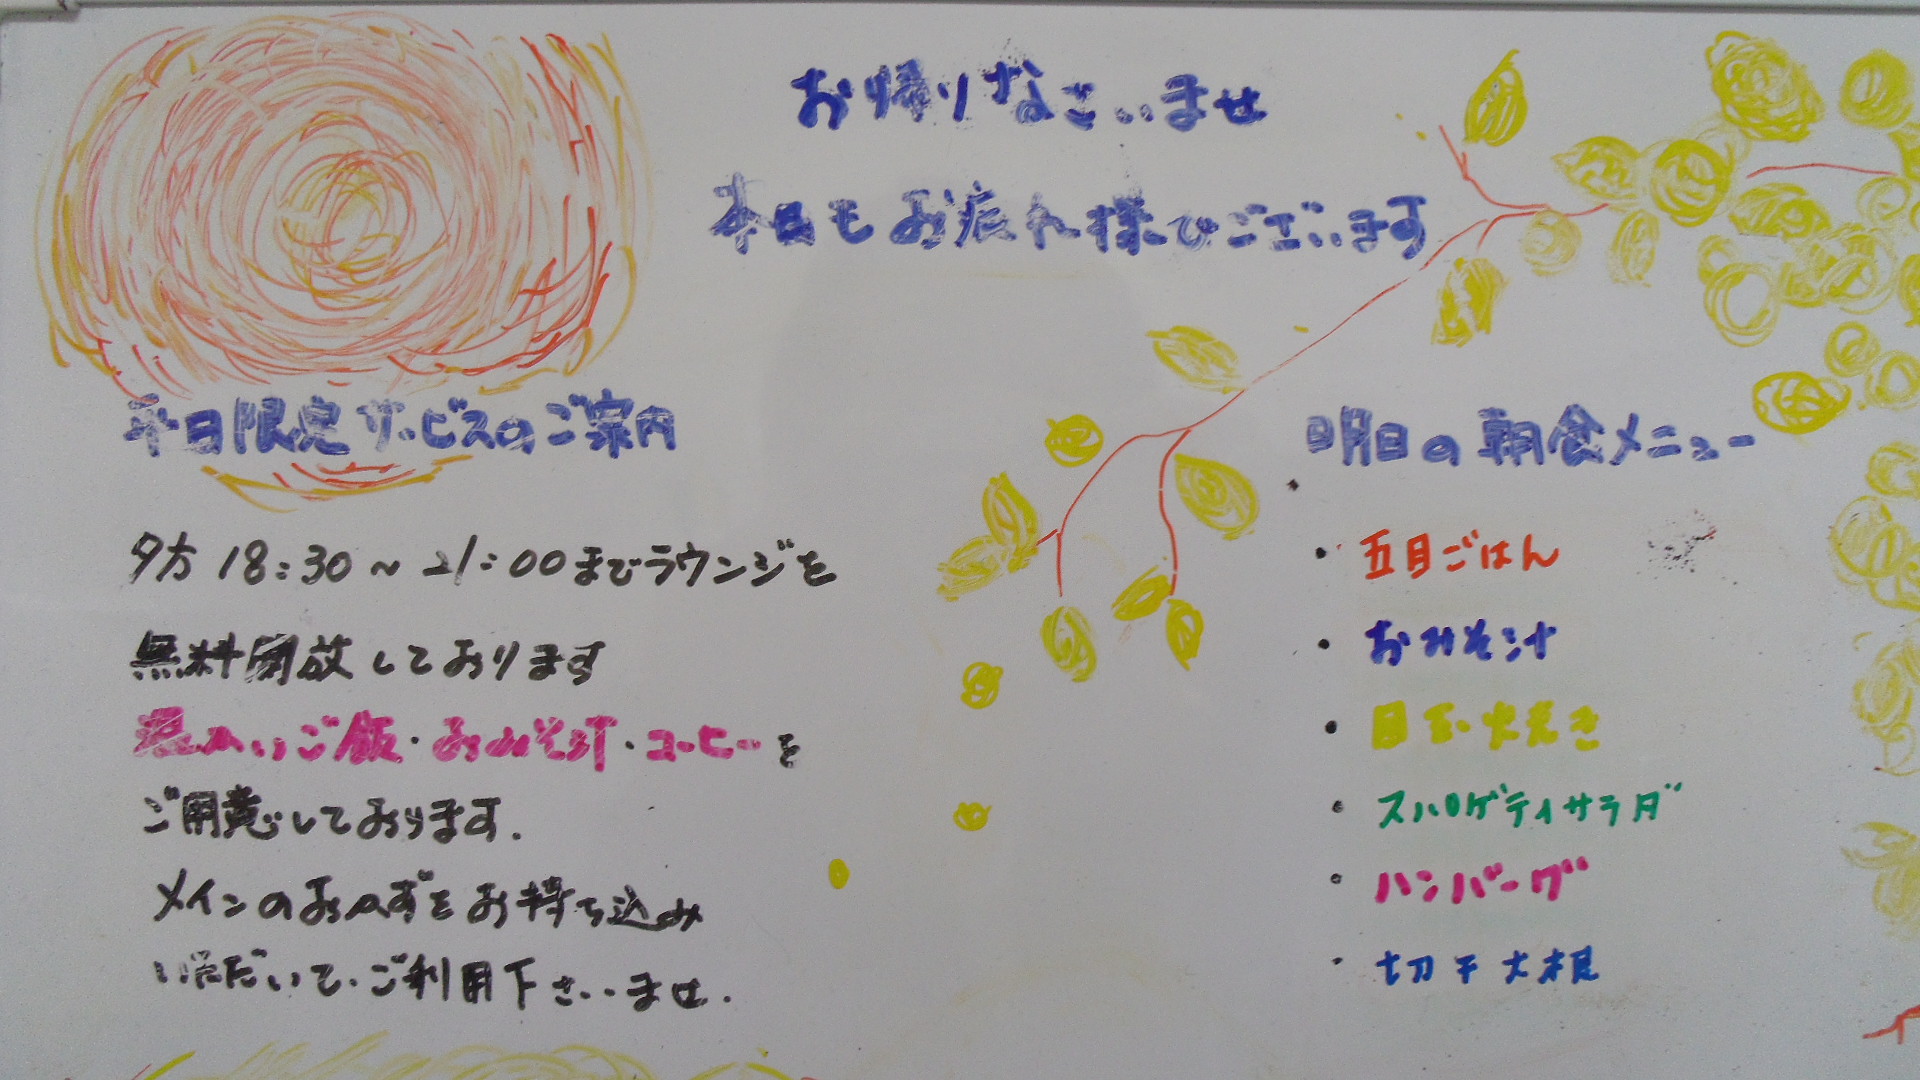 お帰りなさいませ
本日もお疲れ様でございます
平日限定サービスのご案内
夕方 18:30~21:00までラウンジを
無料開放しております
温かいご飯・おみそ汁・コーヒーを
ご用意しております.
メインのおかずをお持ち込み
いただいて、ご利用下さいませ.
明日の朝食メニュー
・五目ごはん
・おみそ汁
・目玉焼き
・スパゲティサラダ
・ハンバーグ
・切干大根